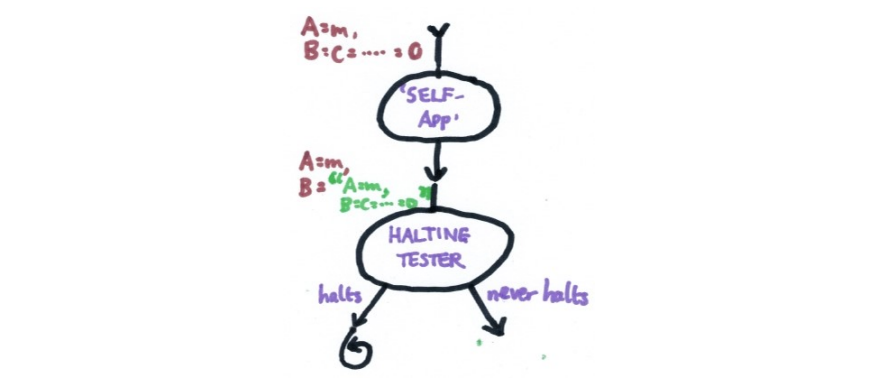 A=m,
B=C=.....=0
'SELF-
App'
A=m,
B="A=m,
B=C=...=0"
HALTING
TESTER
halts
never halts